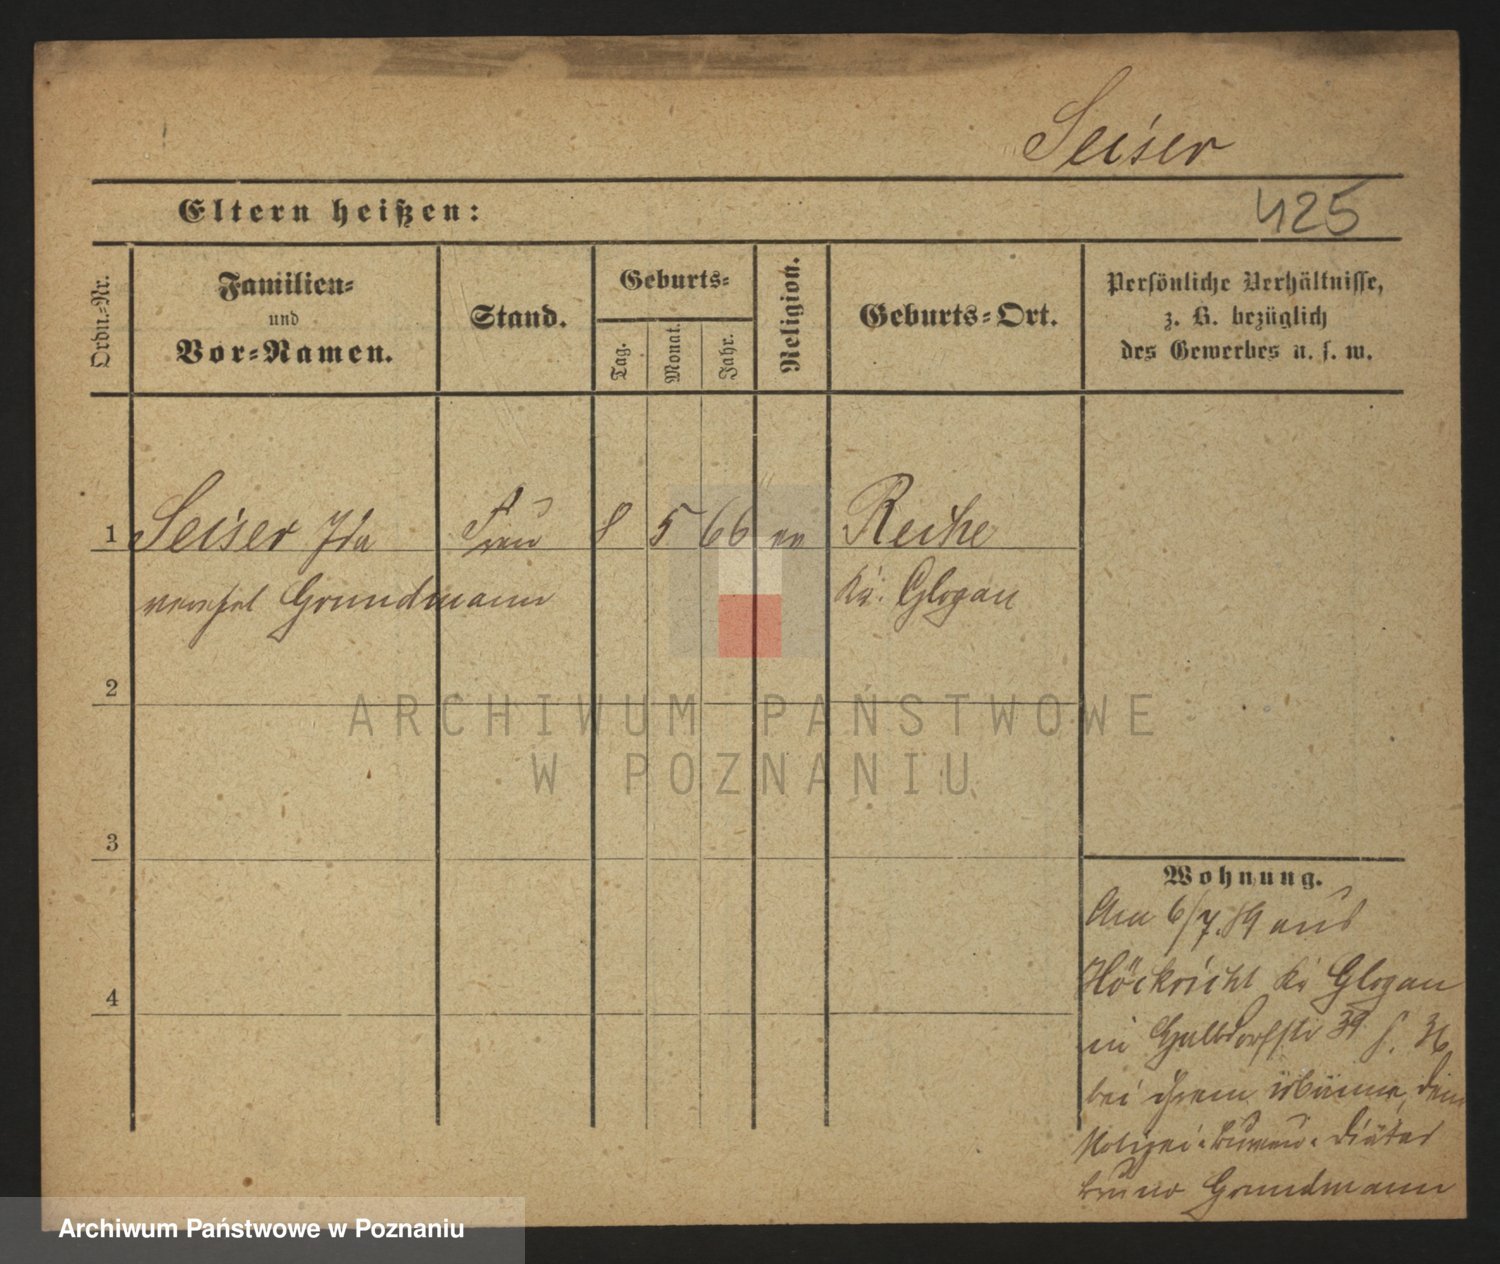 Seiser
425
Eltern heißen:
Ordn.-Nr.
Familien-
und
Vor-Namen.
Stand.
Geburts-
Tag.
Monat.
Jahr.
Religion.
Geburts-Ort.
Persönliche Verhältnisse,
z. B. bezüglich
des Gewerbes u. s. w.
1 Seiser Ida Frau 8 5 66 ev Reihe
verehel Grundmann Kr. Glogau
2
3
4
Wohnung.
Am 6/7. 89 aus
Höckricht Kr Glogau
in Halbdorfstr 39
bei ihrem dem
Polizei-Bureau-Diätar
Bruno Grundmann
ARCHIWUM PAŃSTWOWE
W POZNANIU
Archiwum Państwowe w Poznaniu